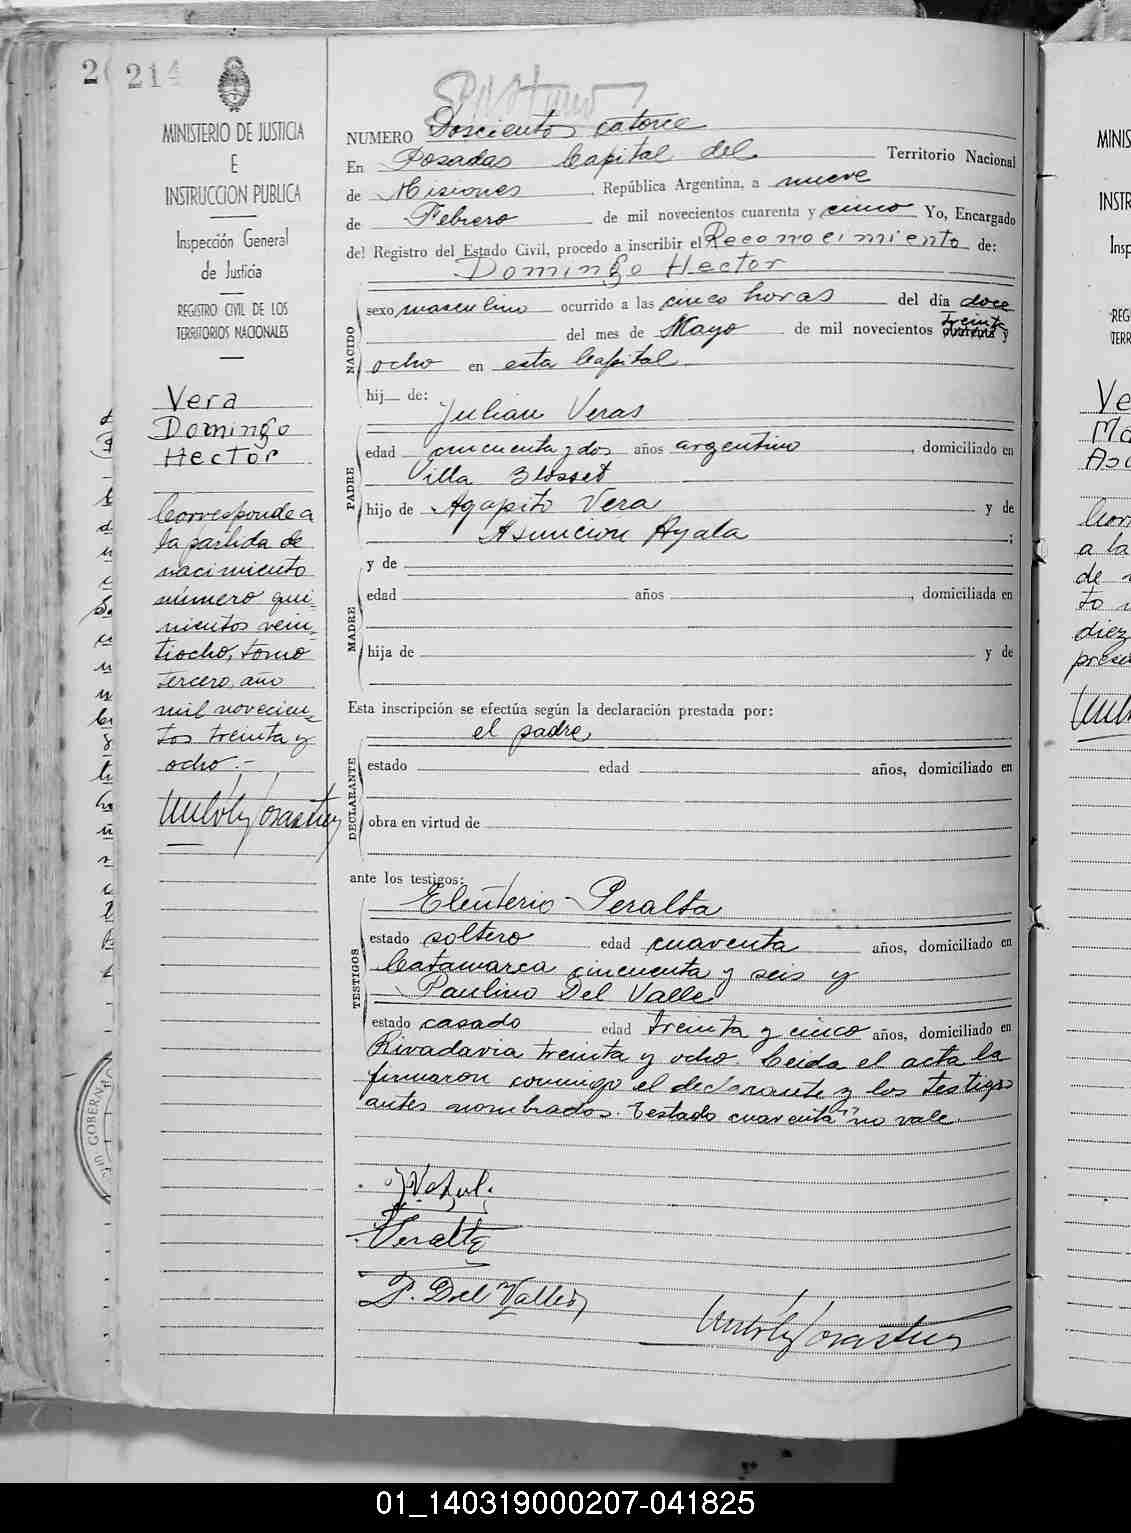 214
MINISTERIO DE JUSTICIA
E
INSTRUCCION PUBLICA
Inspección General
de Justicia
REGISTRO CIVIL DE LOS
TERRITORIOS NACIONALES
Vera
Domingo
Hector
Corresponde a
la partida de
nacimiento
número qui-
nientos vein-
tiocho, tomo
tercero, año
mil novecien-
tos treinta y
ocho.-
NUMERO Doscientos catorce
En Posadas Capital del Territorio Nacional
de Misiones, República Argentina, a nueve
de Febrero de mil novecientos cuarenta y cinco Yo, Encargado
del Registro del Estado Civil, procedo a inscribir el Reconocimiento de:
Domingo Hector
NACIDO
sexo masculino ocurrido a las cinco horas del día doce
del mes de Mayo de mil novecientos treinta y
ocho en esta Capital
hij de:
PADRE
Julian Veras
edad cincuenta y dos años argentino, domiciliado en
Villa Blosset
hijo de Agapito Vera y de
Asuncion Ayala;
MADRE
y de
edad años, domiciliada en
hija de y de
Esta inscripción se efectúa según la declaración prestada por:
el padre
DECLARANTE
estado edad años, domiciliado en
obra en virtud de
ante los testigos:
TESTIGOS
Eleuterio Peralta
estado soltero edad cuarenta años, domiciliado en
Catamarca cincuenta y seis y
Paulino Del Valle
estado casado edad treinta y cinco años, domiciliado en
Rivadavia treinta y ocho. Leida el acta la
firmaron conmigo el declarante y los testigos
antes nombrados. Testado cuarenta" no vale.
Peralta
P. Del Valle
GOBERN
MINIS
INSTR
Insp
REG
TERR
Ve
a la
de
to
diez
01_140319000207-041825